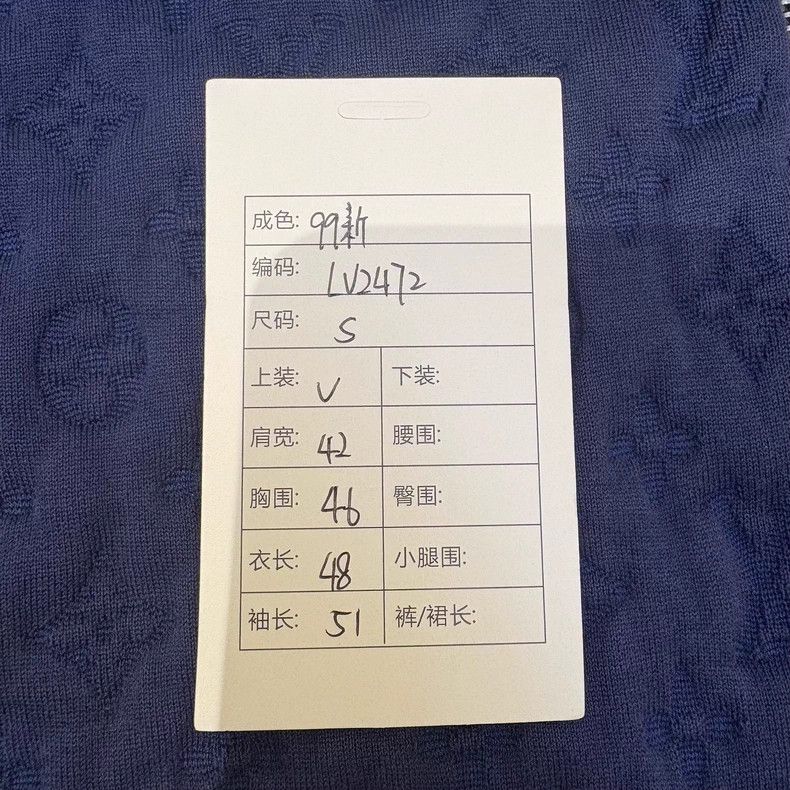 成色: 99新
编码: LV2472
尺码: S
上装: V 下装:
肩宽: 42 腰围:
胸围: 46 臀围:
衣长: 48 小腿围:
袖长: 51 裤/裙长: